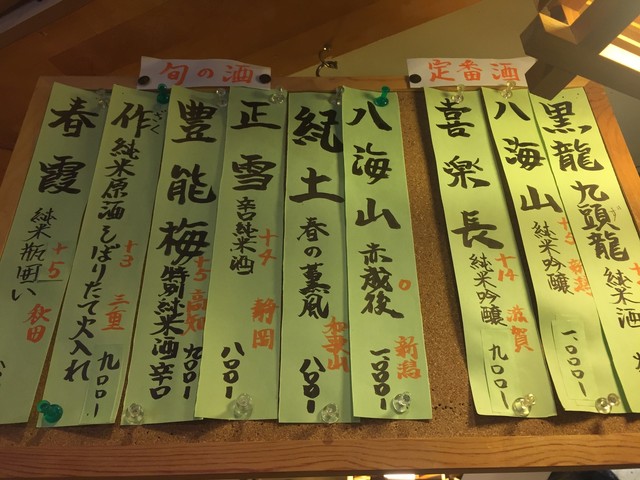 定番酒
黒龍 九頭龍 純米酒
八海山 純米吟醸 新潟 一、〇〇〇-
喜楽長 純米吟醸 +14 滋賀 九〇〇-
旬の酒
八海山 赤越後 0 新潟 一、〇〇〇-
紀土 春の薫風 和歌山 八〇〇-
正雪 辛口純米酒 +4 静岡 八〇〇-
豊能梅 特別純米酒辛口 +5 高知 九〇〇-
作 ざく 純米原酒しぼりたて火入れ +3 三重 九〇〇-
春霞 純米瓶囲い +5 秋田